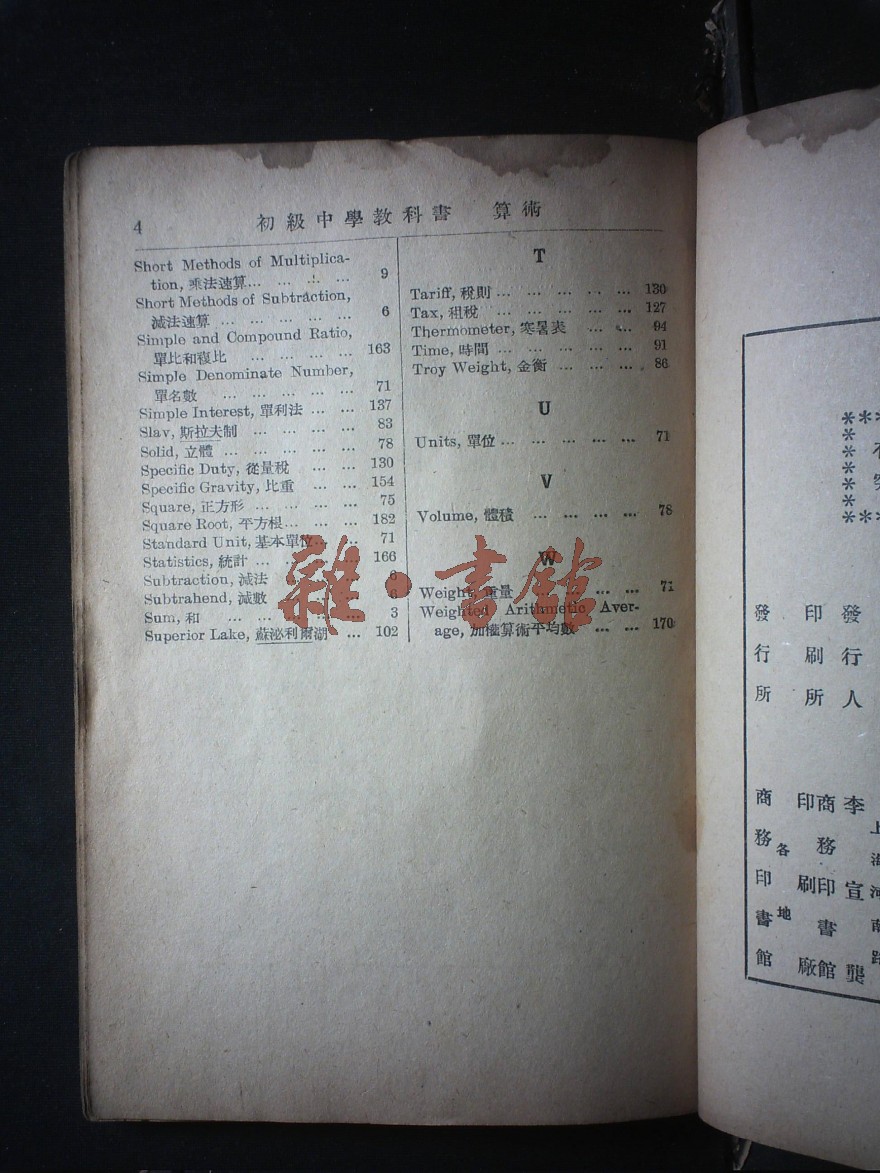 4
初級中學教科書 算術
Short Methods of Multiplica-
tion, 乘法速算... ... ... ... 9
Short Methods of Subtraction,
減法速算 ... ... ... ... ... 6
Simple and Compound Ratio,
單比和複比 ... ... ... ... 163
Simple Denominate Number,
單名數 ... ... ... ... ... 71
Simple Interest, 單利法 ... ... 137
Slav, 斯拉夫制 ... ... ... ... 83
Solid, 立體 ... ... ... ... ... 78
Specific Duty, 從量稅 ... ... 130
Specific Gravity, 比重 ... ... 154
Square, 正方形 ... ... ... ... 75
Square Root, 平方根... ... ... 182
Standard Unit, 基本單位... ... 71
Statistics, 統計 ... ... ... ... 166
Subtraction, 減法 6
Subtrahend, 減數 6
Sum, 和 ... ... ... ... ... ... 3
Superior Lake, 蘇泌利爾湖 ... 102
T
Tariff, 稅則 ... ... ... ... ... 130
Tax, 租稅 ... ... ... ... ... 127
Thermometer, 寒暑表 ... ... 94
Time, 時間 ... ... ... ... ... 91
Troy Weight, 金衡 ... ... ... 86
U
Units, 單位 ... ... ... ... ... 71
V
Volume, 體積 ... ... ... ... 78
W
Weight, 重量 ... ... ... 71
Weighted Arithmetic Aver-
age, 加權算術平均數 ... ... 170
雜·書館
發行人 李宣龔
上海河南路
印刷所 商務印書館
印刷廠
發行所 商務印書館
各地